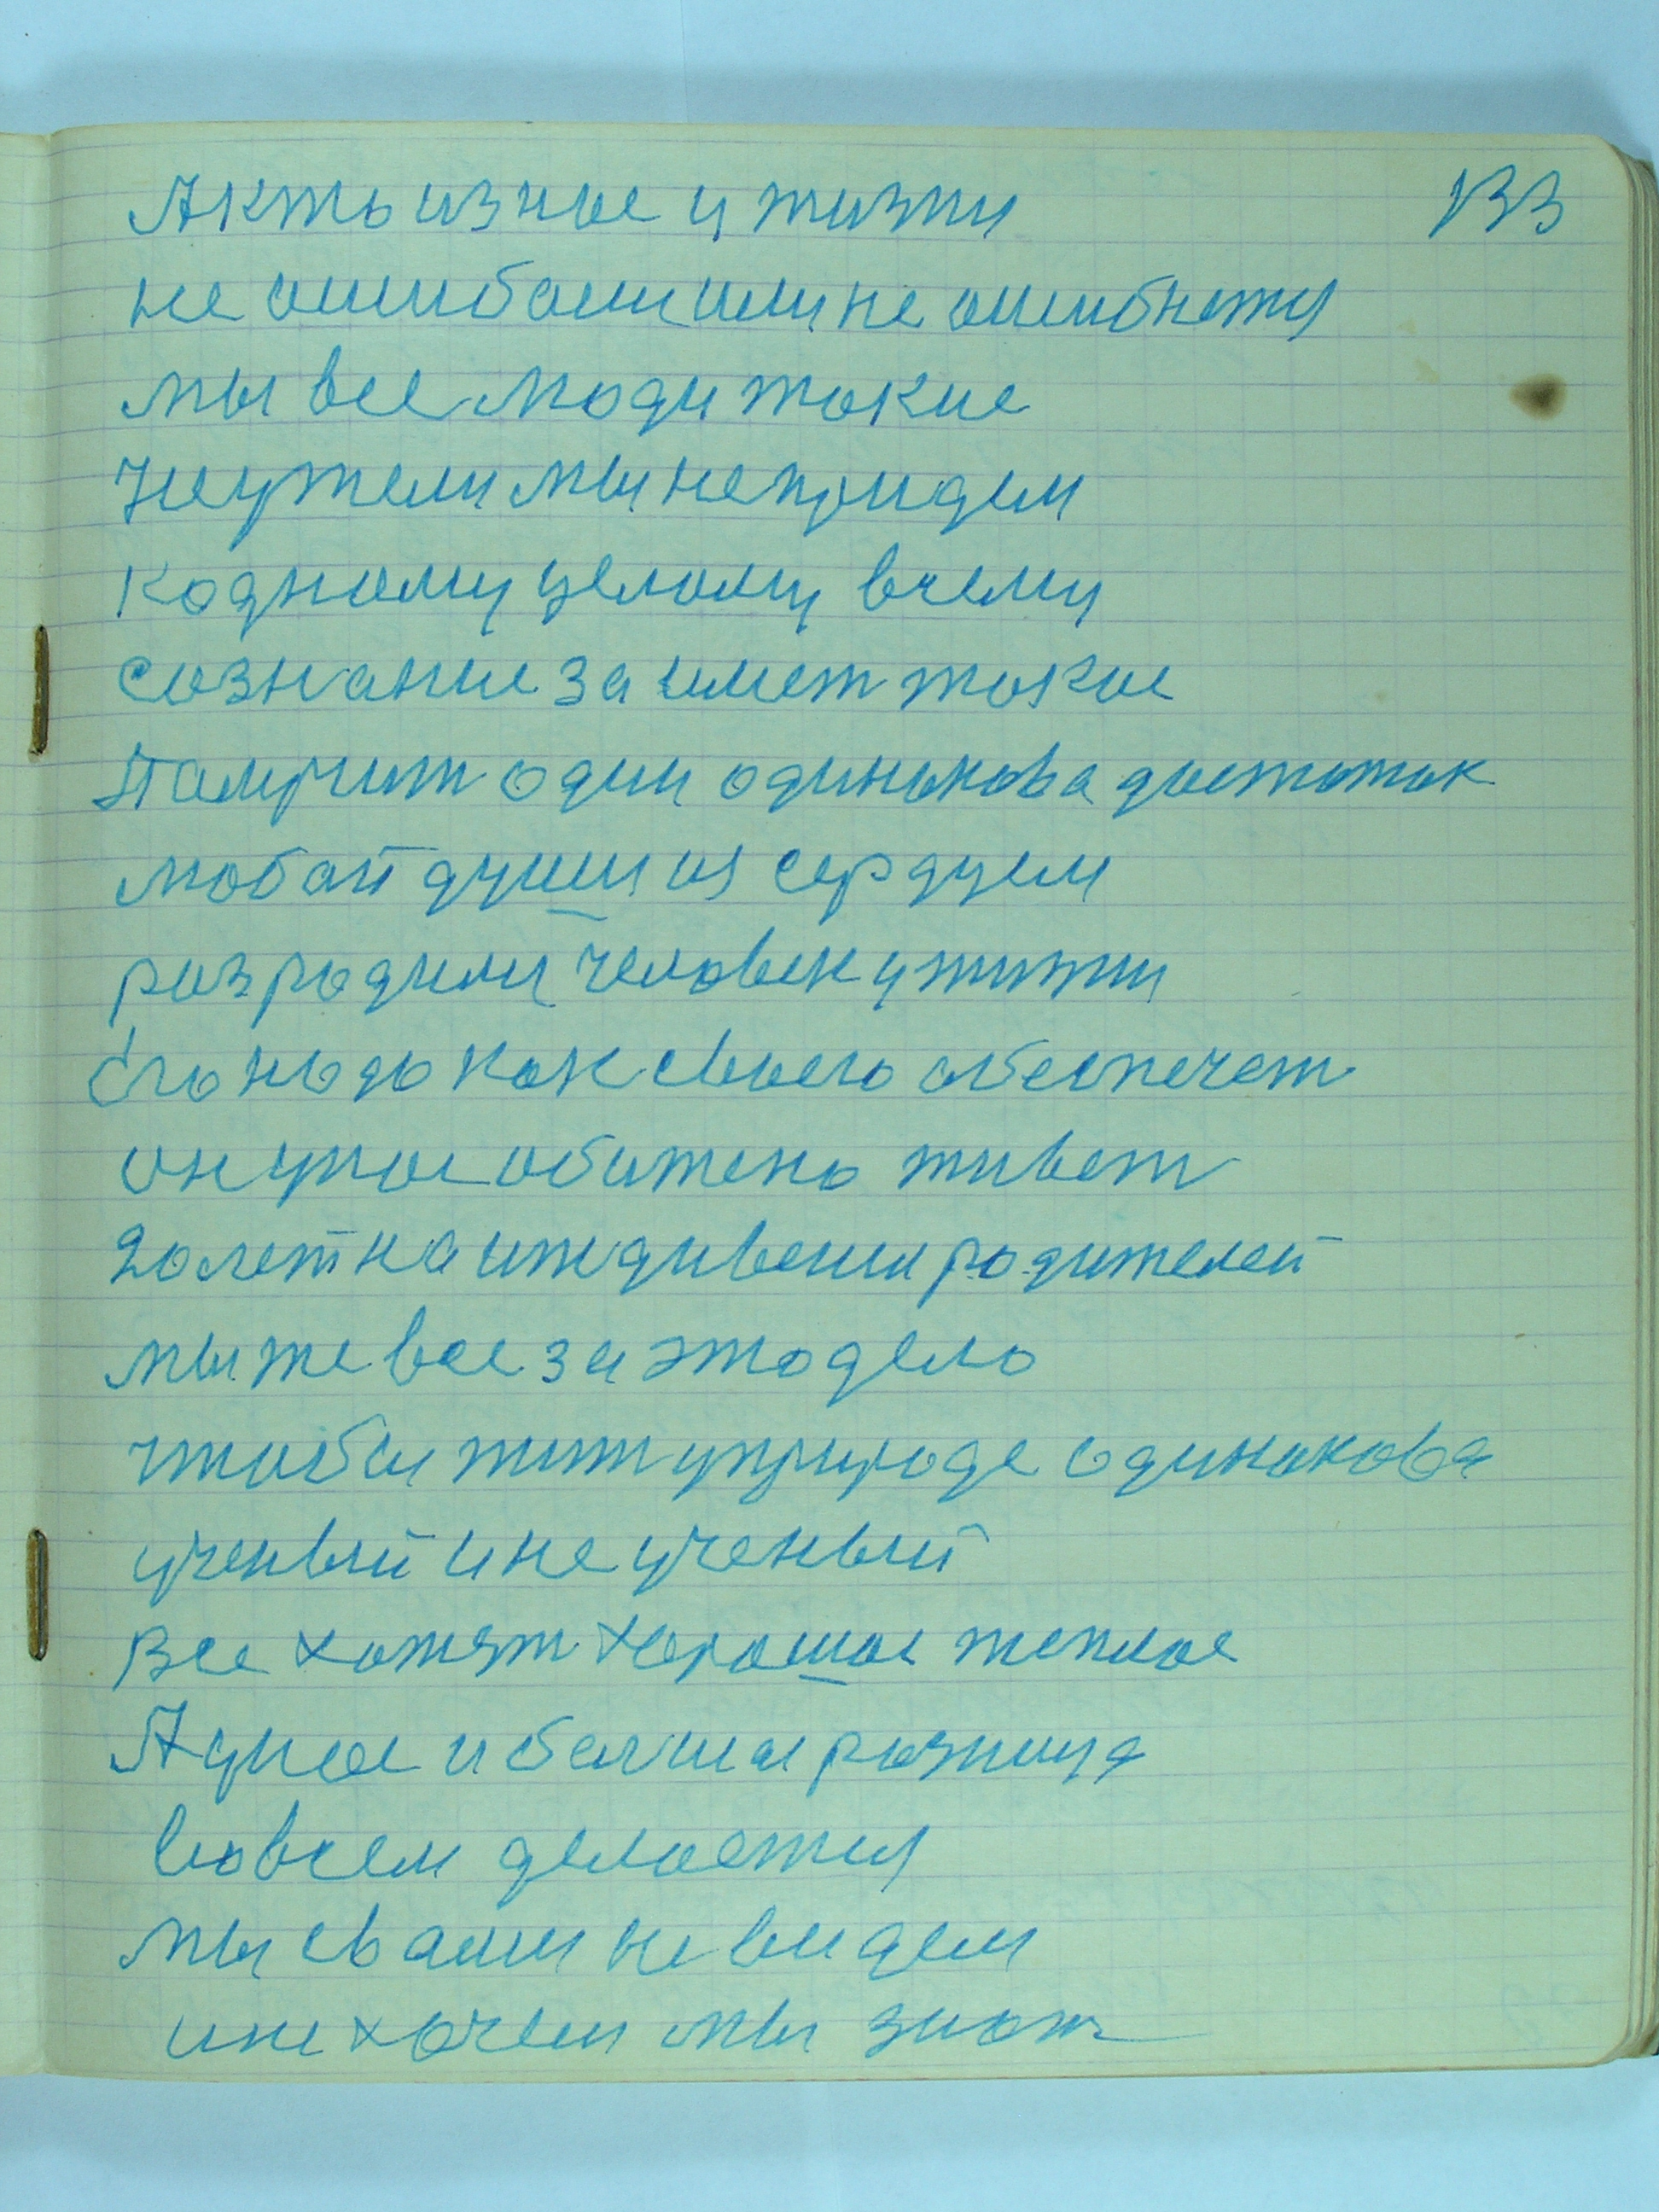 133
А кто из нас у жизни
не ошибался или не ошибнется
мы все люди такие
Неужели мы не придем
к одному целому в чему
сознание заимет такое
Палучит один одинакова достаток
любой души из сердцем
раз родили человек у жизни
Его надо как своего обеспечет
он у нас обижено живет
20 лет на иждивении родителей
мы же все за это дело
чтобы жит у природе одинакова
ученый и не ученый
Все хотят хорошое теплое
А у нас и болшая разница
во всем делается
мы с вами не видем
и не хочем мы знат